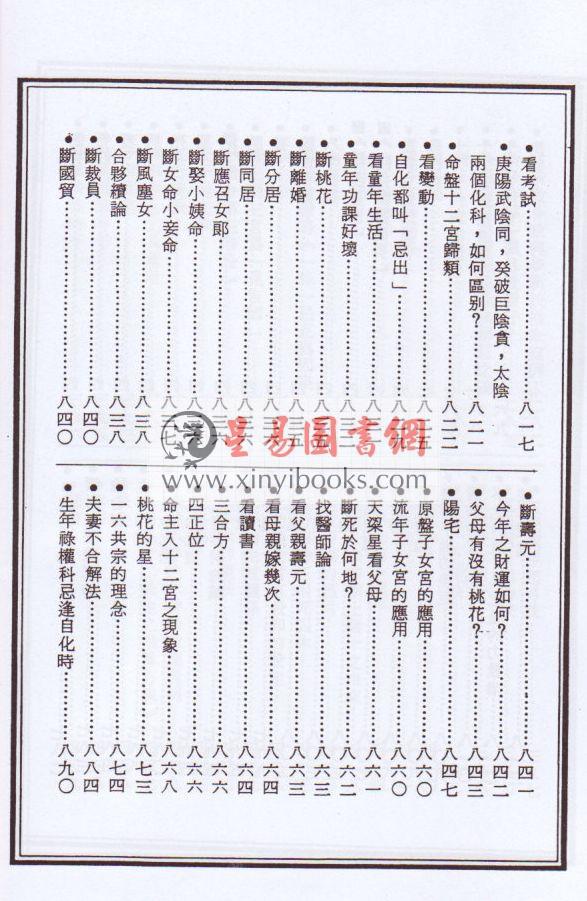 ●看考試……八一七
●庚陽武陰同，癸破巨陰貪，太陰
兩個化科，如何區別？……八二一
●命盤十二宮歸類……八二二
●看變動……八 五
●自化都叫「忌出」……八 九
●看童年生活……八
●童年功課好壞……八三二
●斷桃花……八三五
●斷離婚……八三五
●斷分居……八三六
●斷同居……八三六
●斷應召女郎……八三六
●斷娶小姨命……八三
●斷女命小妾命……八三七
●斷風塵女……八三八
●合夥續論……八三八
●斷裁員……八四〇
●斷國貿……八四〇
●斷壽元……八四一
●今年之財運如何？……八四二
●父母有沒有桃花？……八四三
●陽宅……八四七
●原盤子女宮的應用……八六〇
●流年子女宮的應用……八六〇
●天梁星看父母……八六一
●斷死於何地？……八六二
●找醫師論……八六三
●看父親壽元……八六三
●看母親嫁幾次……八六四
●看讀書……八六四
●三合方……八六六
●四正位……八六六
●命主入十二宮之現象……八六八
●桃花的星……八七三
●一六共宗的理念……八七四
●夫妻不合解法……八八四
●生年祿權科忌逢自化時……八九〇
星易圖書網
www.xinyibooks.com